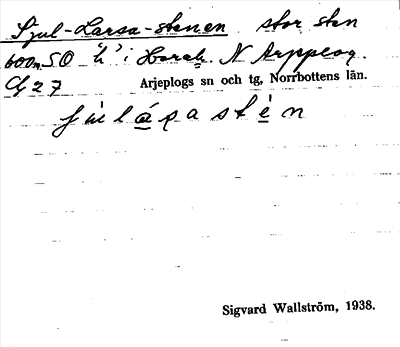 Sjul-Larsa-stenen stor sten
600m SO "h" i Horch. N Arpplog.
Cg 27 Arjeplogs sn och tg, Norrbottens län.
Sigvard Wallström, 1938.